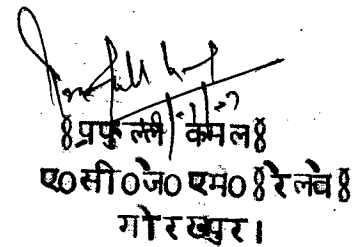 ॰प्रफुल्ल कमल॰
ए०सी०जे० एम० ॰रेलवे॰
गोरखपुर।